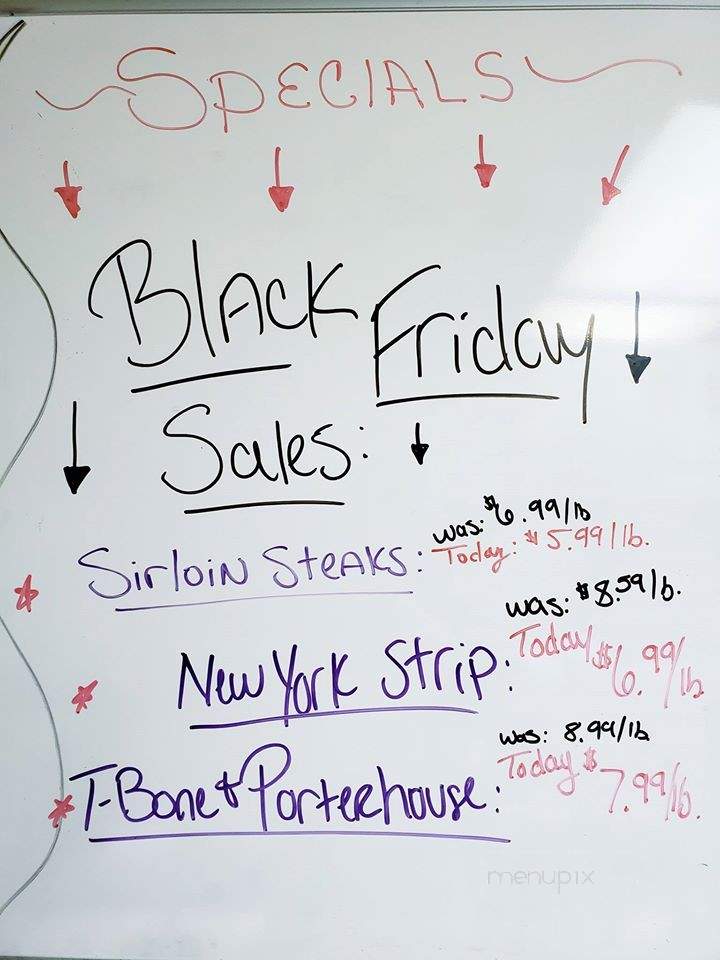 SPECIALS
Black Friday
Sales:
was: $6.99/lb
Sirloin Steaks: Today: $5.99/lb.
was: $8.59/lb.
New York Strip: Today $6.99/lb
was: 8.99/lb
T-Bone & Porterhouse: Today $7.99/lb.
menupix